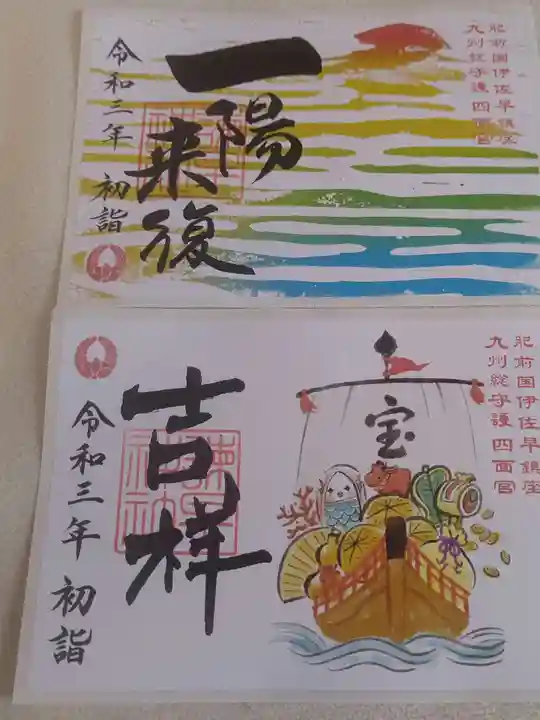 肥前国伊佐早鎮座
九州総守護 四面宮
一陽
来復
令和三年 初詣
肥前国伊佐早鎮座
九州総守護 四面宮
宝
吉祥
諫早神社
令和三年 初詣